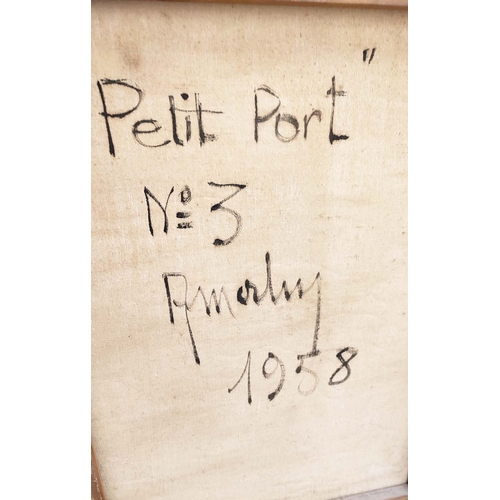 Petit Port"
Nº 3
1958